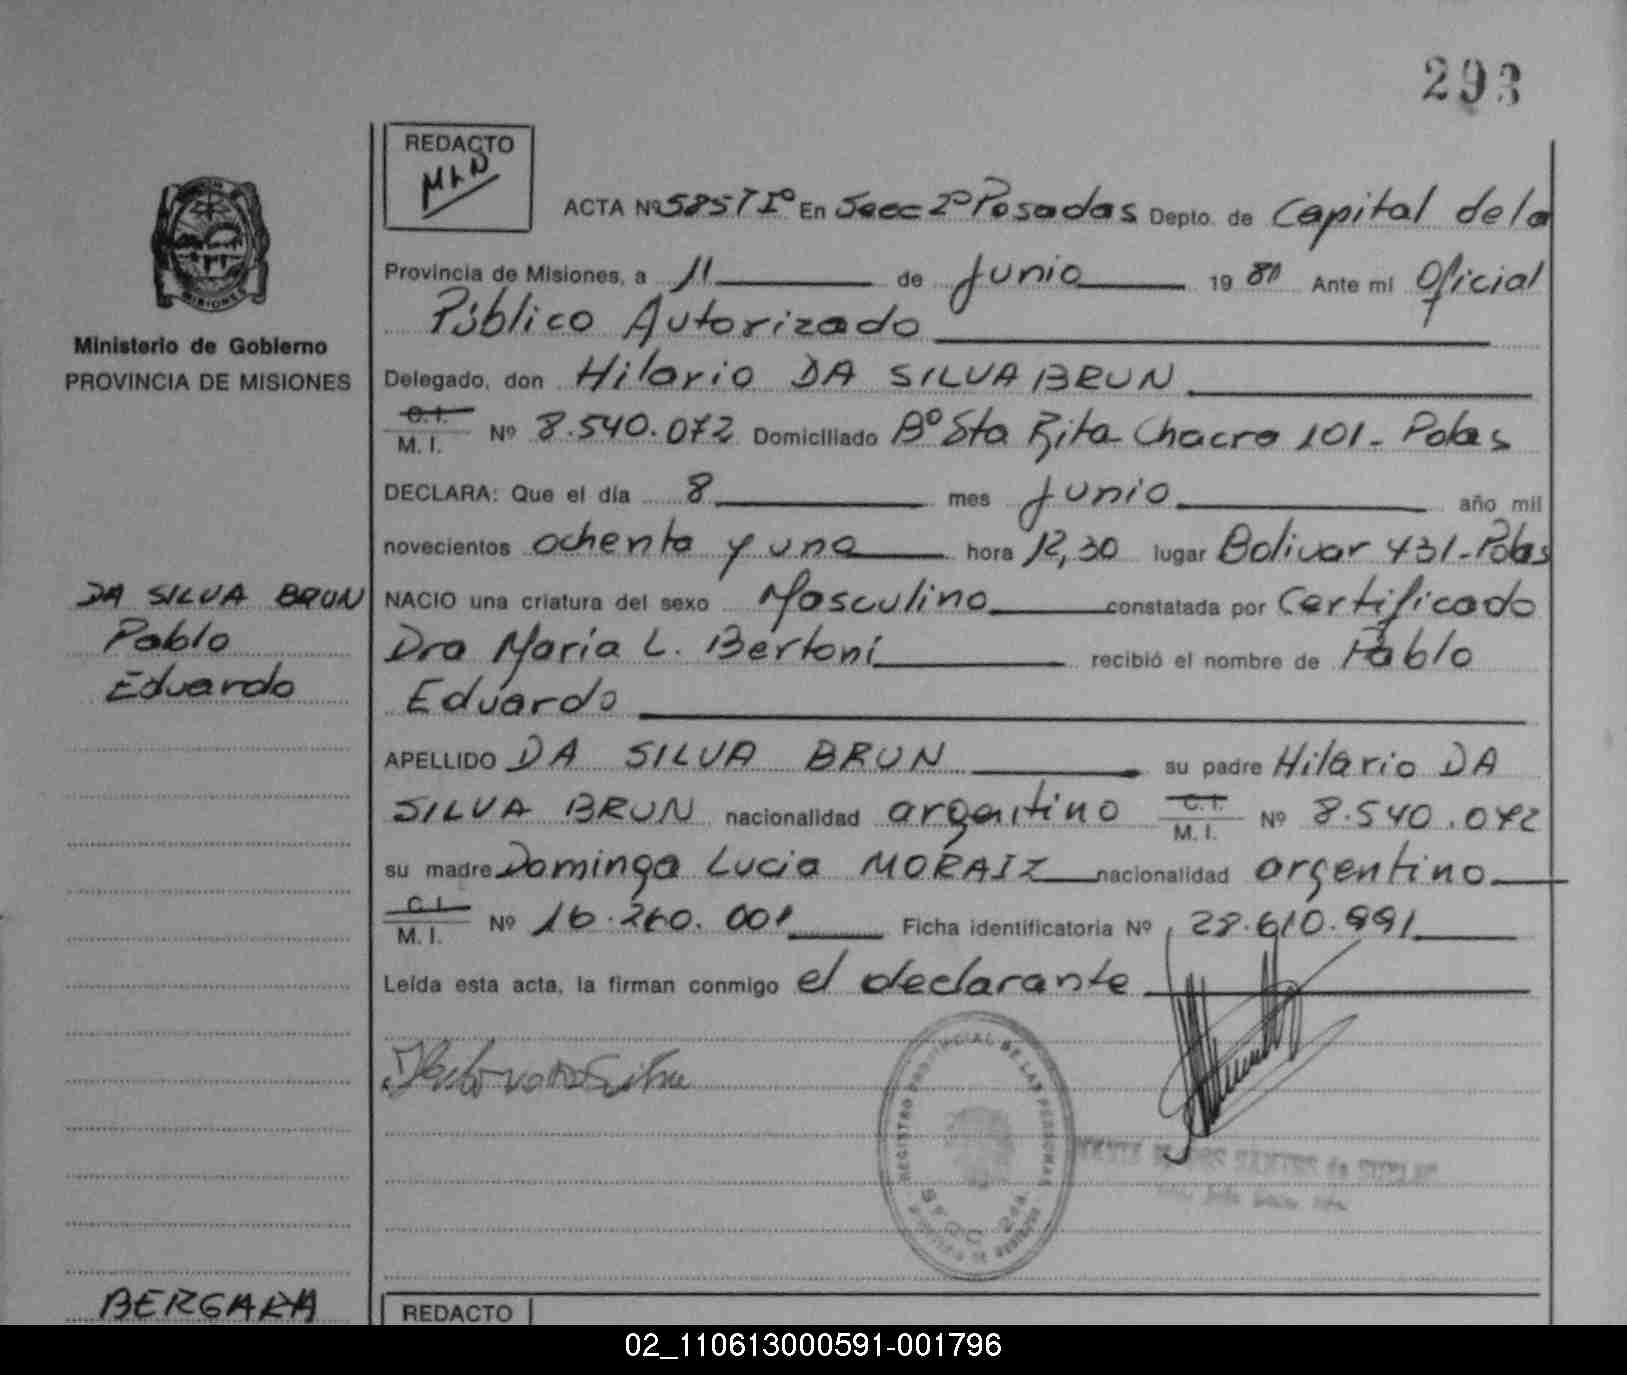 293
REDACTO
MLN
ACTA Nº 585 T Iº En Secc 2º Posadas Depto. de Capital de la
Provincia de Misiones, a 11 de Junio 19 81 Ante mi Oficial
Público Autorizado
Delegado, don Hilario DA SILVA BRUN
C.I.
M. I. Nº 8.540.072 Domiciliado Bº Sta Rita Chacra 101 - Pdas
DECLARA: Que el día 8 mes Junio año mil
novecientos ochenta y uno hora 12,30 lugar Bolivar 431-Pdas
NACIO una criatura del sexo Masculino constatada por Certificado
Dra Maria L. Bertoni recibió el nombre de Pablo
Eduardo
APELLIDO DA SILVA BRUN su padre Hilario DA
SILVA BRUN nacionalidad argentino C.I.
M. I. Nº 8.540.072
su madre Dominga Lucia MORAIZ nacionalidad argentino
C.I.
M. I. Nº 16.260.001 Ficha identificatoria Nº 28.610.991
Leída esta acta, la firman conmigo el declarante
MISIONES
Ministerio de Gobierno
PROVINCIA DE MISIONES
DA SILVA BRUN
Pablo
Eduardo
REGISTRO PROVINCIAL DE LAS PERSONAS
SECC. 2da.
BERGARA
REDACTO
02_110613000591-001796